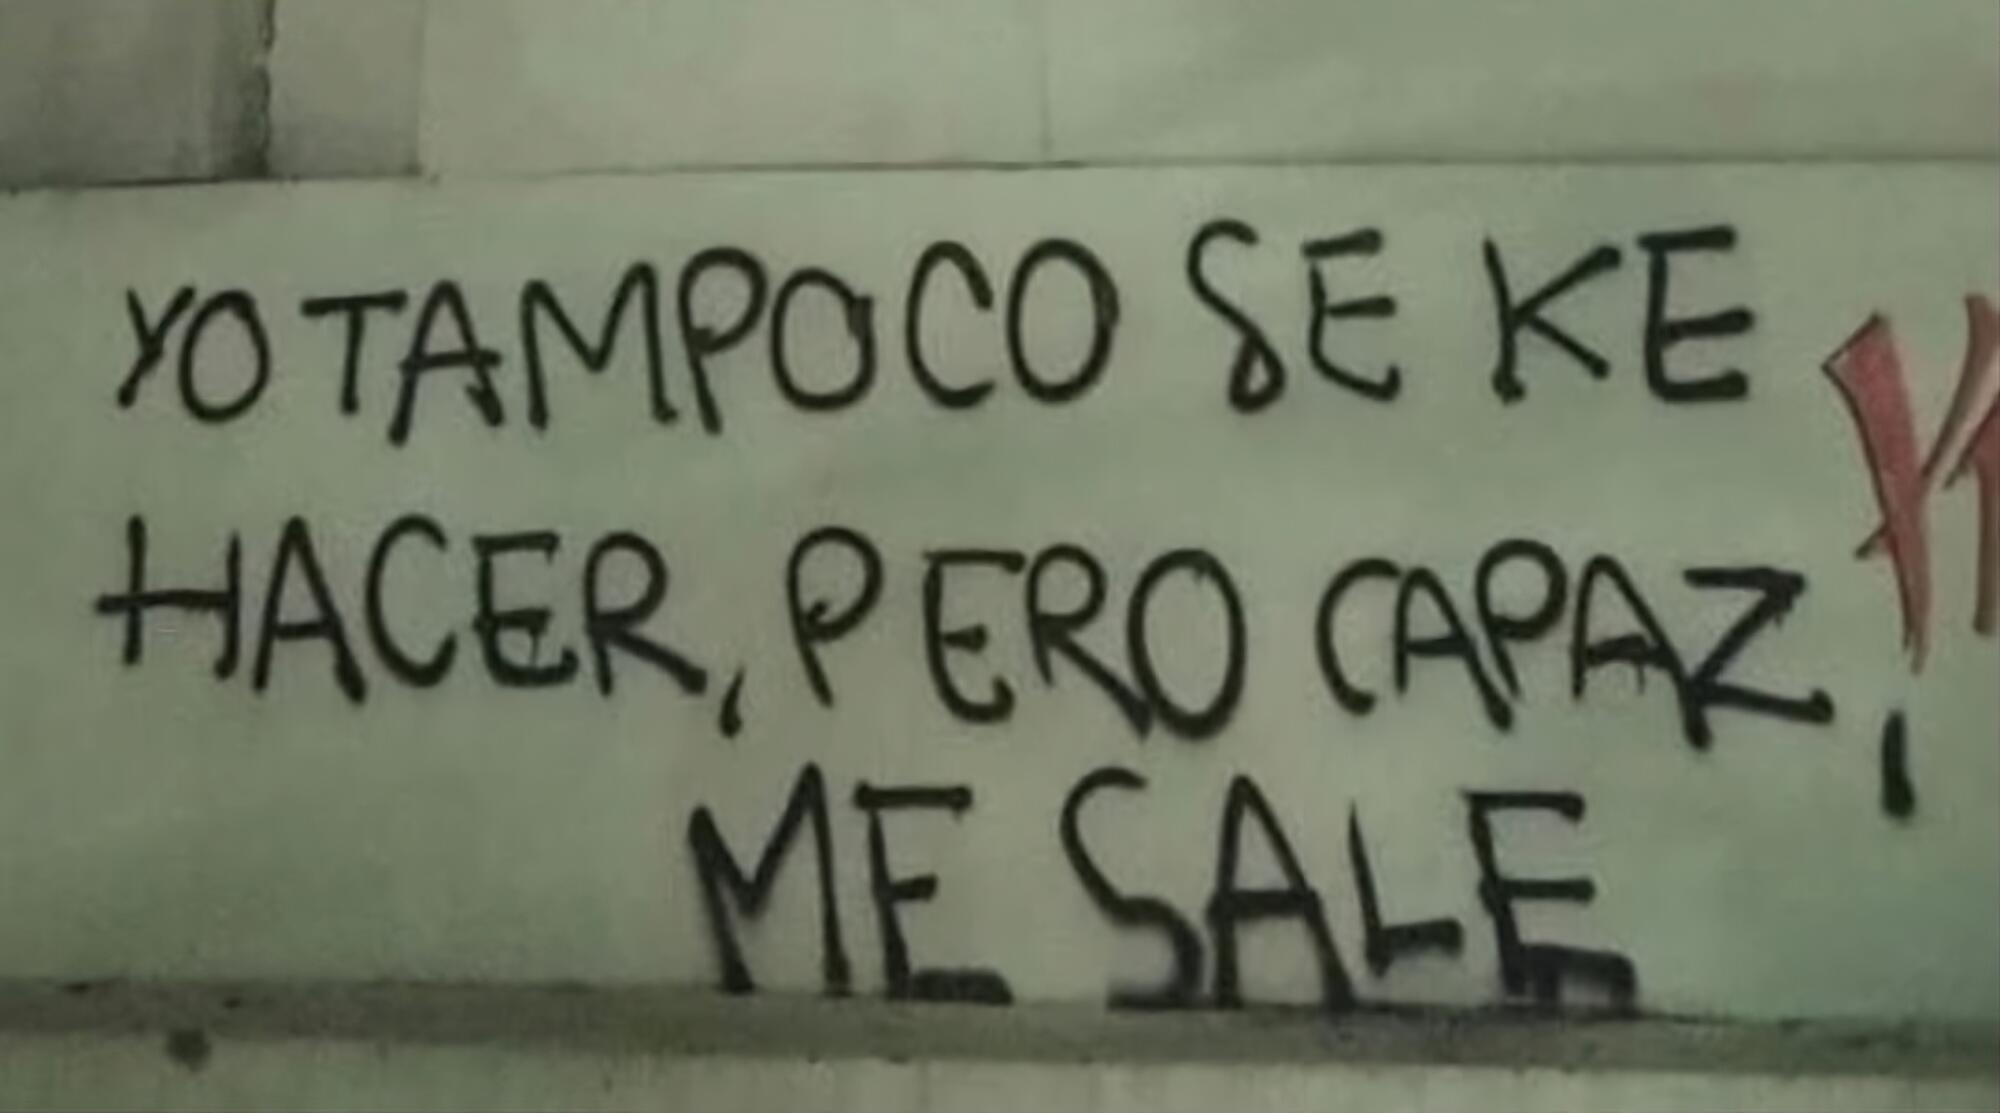 YO TAMPOCO SE KE
HACER, PERO CAPAZ,
ME SALE